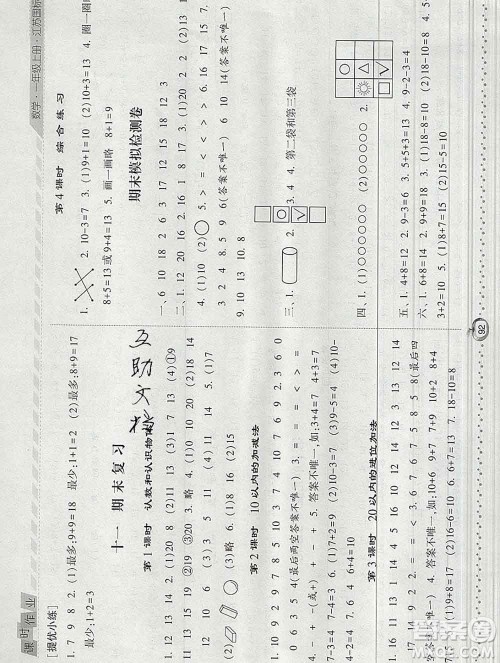 课时作业
数学·一年级上册·江苏国标
[提优小练]
1. 7 9 8 2. (1)最多:9+9=18 (2)最多:8+9=17
最少:1+2=3 最少:1+1=2
十一 期末复习
第1课时 认数和认识物体
1. 12 13 14 2. (1)20 8 (2)11 13 (3)1 7 13 (4)①9
②19 ③20 3. 略 4. (1)0 10 20 (2)18 14
11 13 15 19
12 10 6 (3) 3 5 11 (4) 11 14 5. (1)7
(3)略 6. (1)8 16 (2)15
第2课时 10以内的加减法
1. 10 9 2 8 2 5 4 8 10 3 4 10 7 6 9 2. 3 6 0
0 6 3 5 4(最后两空答案不唯一) 3. = = = < > =
4. + - -(或+) + - + 5. 答案不唯一,如:3+4=7 4+3=7
7-3=4 7-4=3 6. (1)7+2=9 (2)10-3=7 (3)9-5=4 (4)10-
4=6 7. 6 4 6+4=10
第3课时 20以内的进位加法
1. 16 11 13 11 14 4 5 16 10 12 14 12 3 13 12 14
14 11 9 2. = = < 3. 6 7 6 7 5 8 5 8(最后四
空答案不唯一) 4. 答案不唯一,如:10+6 9+7 7+9 10+2 8+4
5. (1)9+8=17 (2)16-6=10 6. 6+7=13 7. 18-10=8
第4课时 综合练习
1. 2. 10-3=7 3. (1)9+1=10 (2)10+3=13 4. 圈一圈略
8+5=13或9+4=13 5. 画一画略 8+1=9
期末模拟检测卷
一、6 10 18 2 6 3 17 12 15 18 12 3
二、1. 12 20 16 2. 16 1 8 17 3. (1)20 2 2 (2)13 1
4. (1)10 (2) 5. > = < < > > 6. 16 17 15 7.
3 2 4 8. 5 9 6(答案不唯一) 6 10 14(答案不唯一)
9. 10 13 10. 8
三、1. 2. 3. 4 4. 第二袋和第三袋
四、1. (1)○○○○○ (2)○○○○○○ 2.
五、1. 4+8=12 2. 9-3=6 3. 5+5+3=13 4. 9-2-3=4
六、1. 6+8=14 2. 9+9=18 3. (1)18-8=10 (2)18-10=8 4. 5-
3+2=10 5. (1)8+7=15 (2)15-5=10
92
互助文